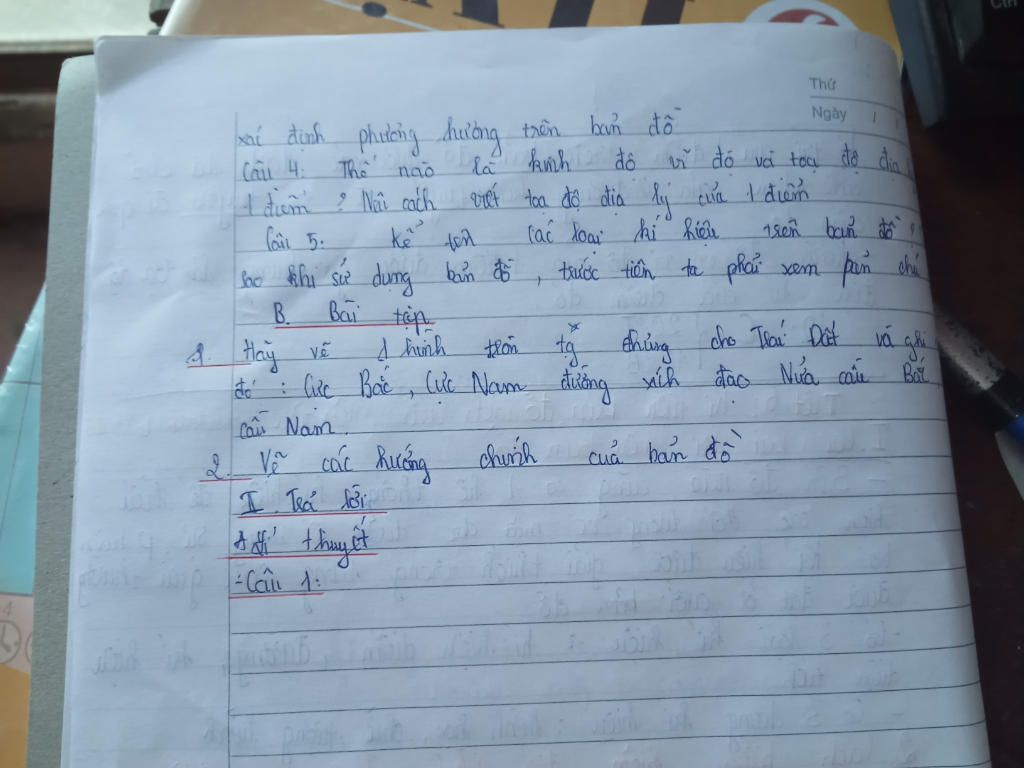 Ctrl
Thứ
Ngày / /
xác định phương hướng trên bản đồ
Câu 4: Thế nào là kinh độ vĩ độ và toạ độ địa
1 điểm ? Nói cách viết toạ độ địa lý của 1 điểm
Câu 5: Kể tên các loại kí hiệu trên bản đồ ?
sao khi sử dụng bản đồ, trước tiên ta phải xem bản chú
B. Bài tập
1. Hãy vẽ 1 hình tròn tg trưng cho Trái Đất và ghi
đó : Cực Bắc, Cực Nam đường xích đạo Nửa cầu Bắc,
cầu Nam.
2. Vẽ các hướng chính của bản đồ
II. Trả lời
A Lí thuyết
- Câu 1: